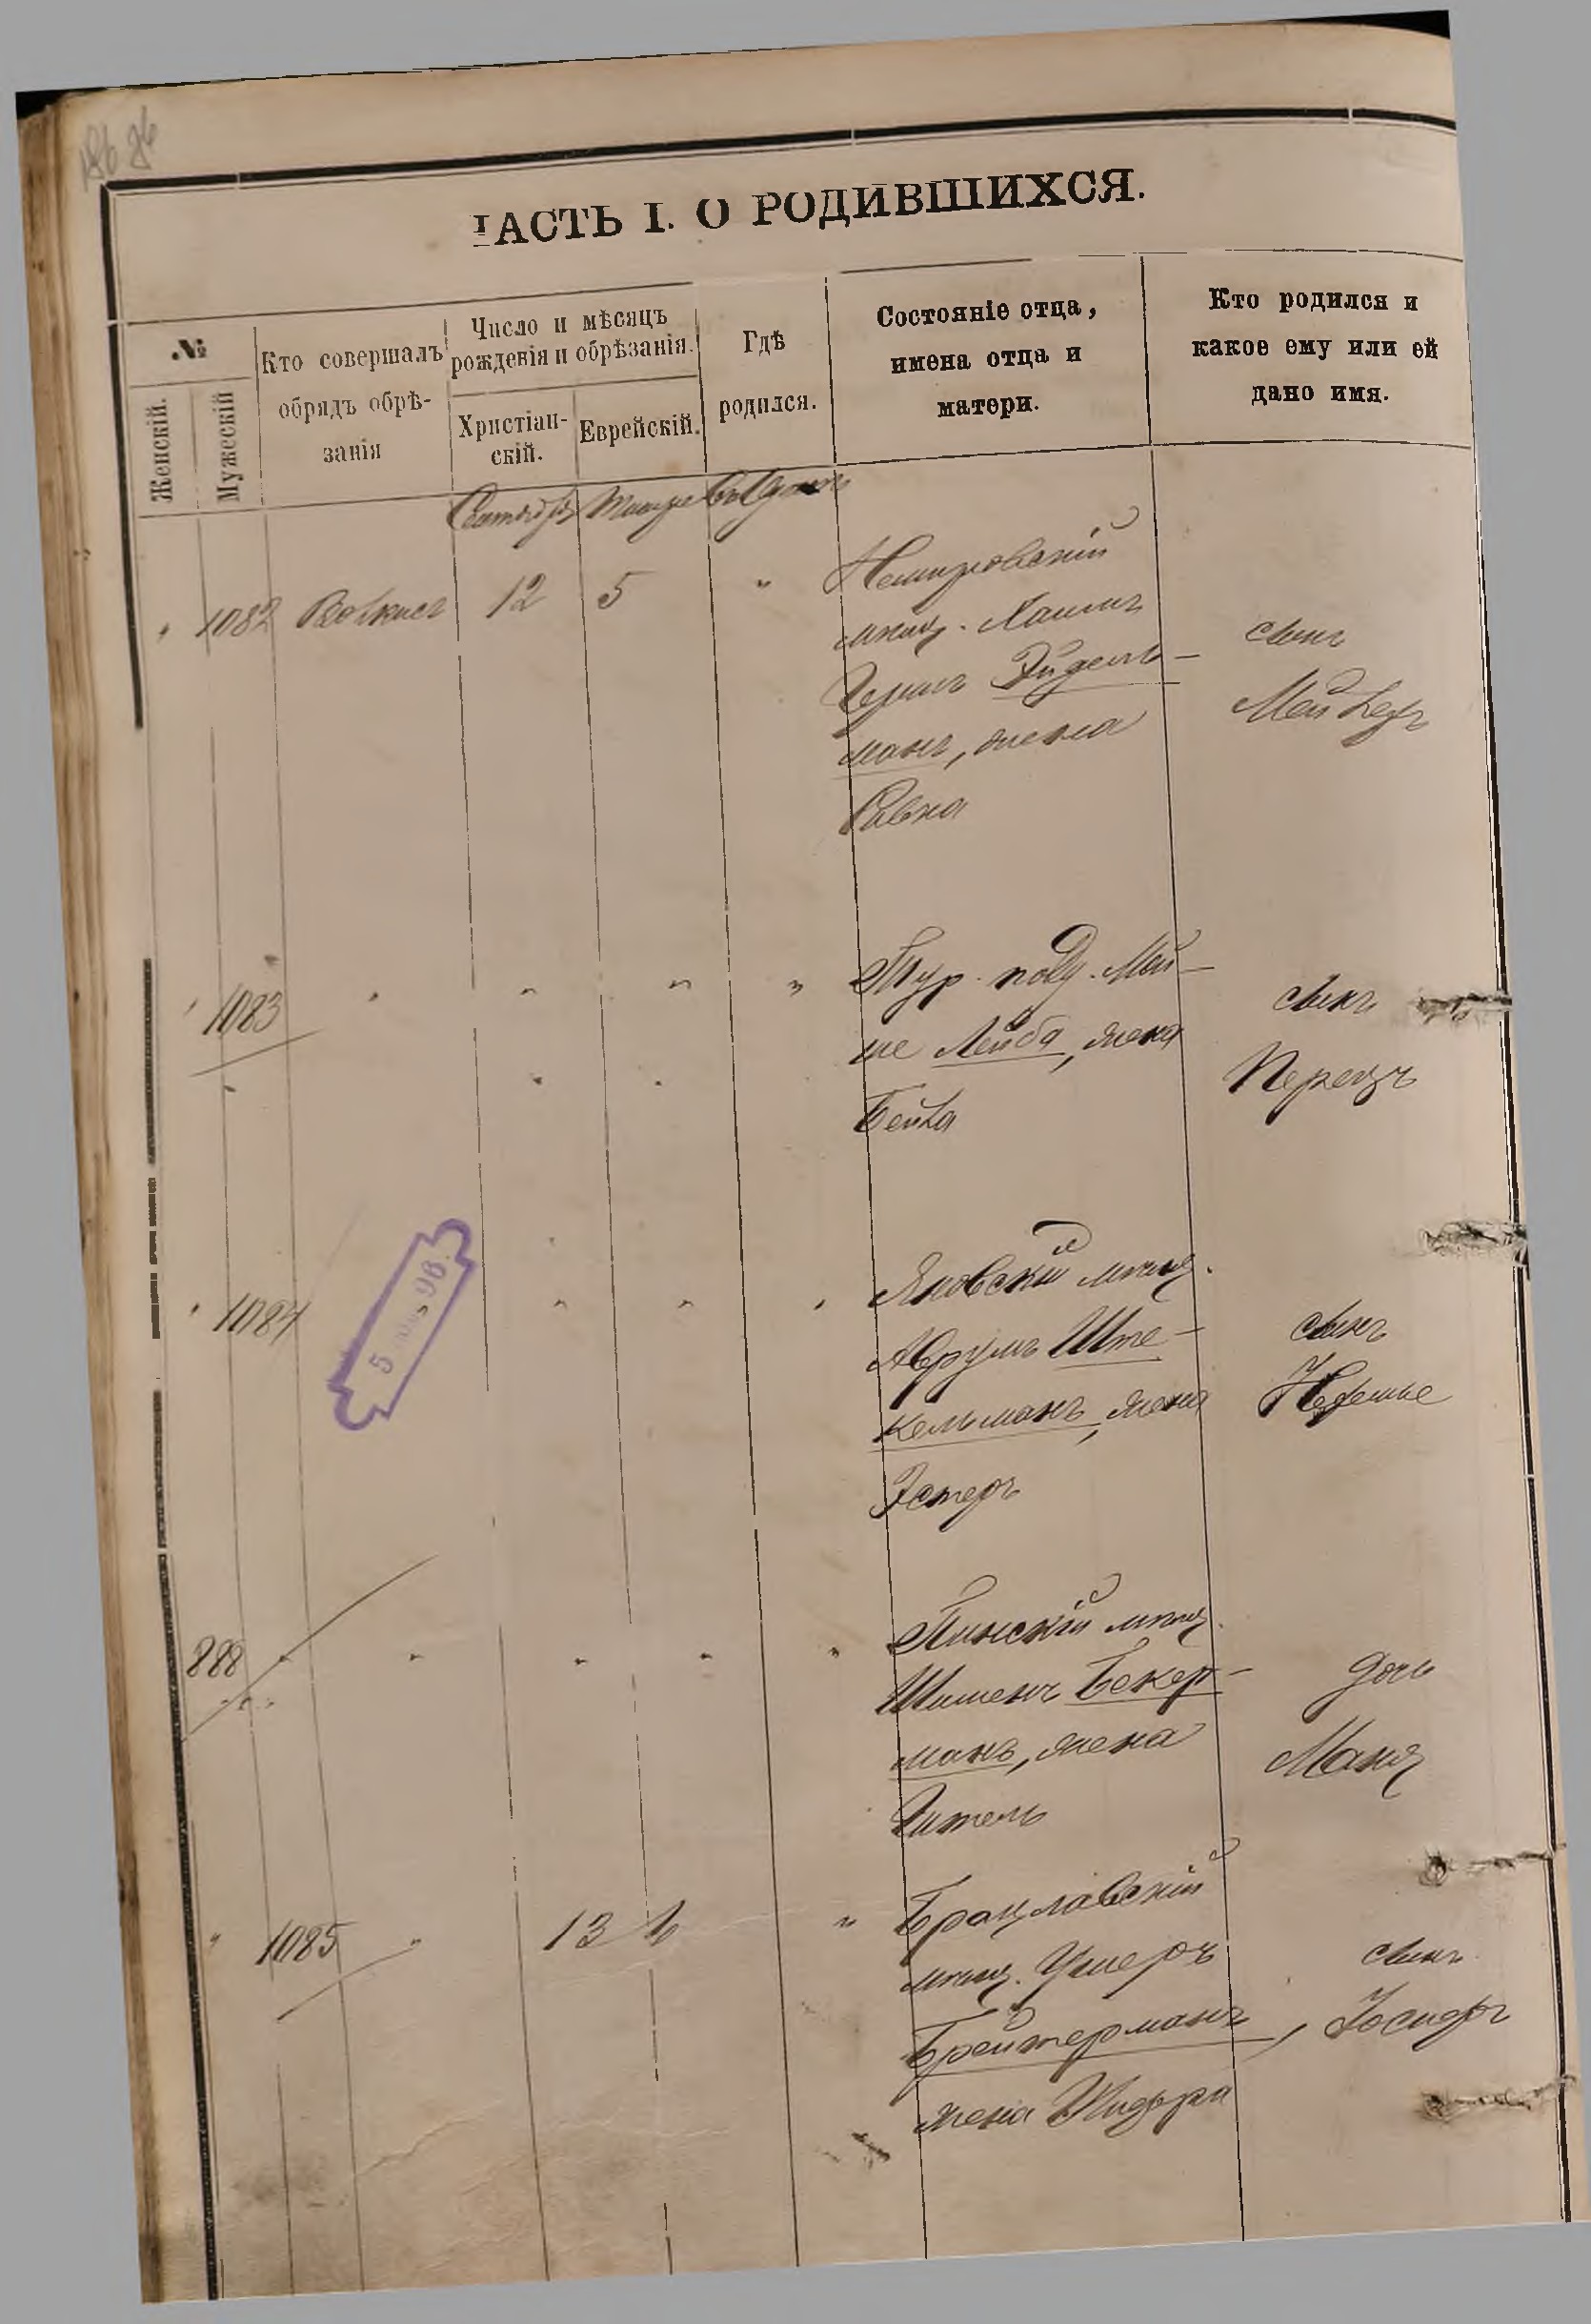 ЧАСТЬ I. О РОДИВШИХСЯ.
№
Женскій.
Мужескій
Кто совершалъ
обрядъ обрѣ-
занія
Число и мѣсяцъ
рожденія и обрѣзанія.
Христіан-
скій.
Еврейскій.
Гдѣ
родился.
Состояніе отца,
имена отца и
матери.
Кто родился и
какое ему или ей
дано имя.
Сентябрь Тишре
" 1082 12 5 "
Немировскій
мѣщ. Хаимъ
Герш Эйдель-
манъ, жена
сынъ
Мейлехъ
" 1083 " " " "
Тур. подд. Мой-
ше Лейба, жена
Бейла
сынъ
Перецъ
" 1084 " " "
Яновскій мѣщ.
Аврумъ Ште-
кельманъ, жена
Эстеръ
сынъ
5 96
888 " " " " "
Пинскій мѣщ.
Шименъ Бекер-
манъ, жена
Гитель
дочь
Маня
" 1085 " 13 "
Брацлавскій
мѣщ. Ушеръ
Брейтерманъ,
жена
сынъ
Іосифъ